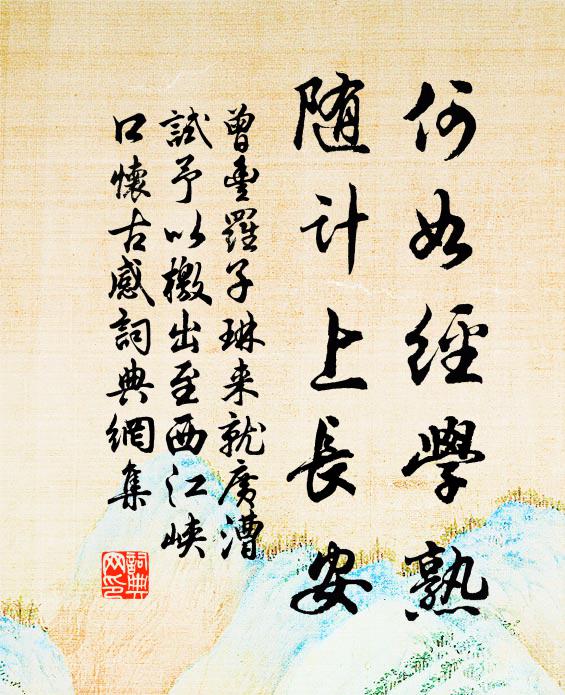 何如經學熟
随計上長安
曾豐羅子琳来就廣漕
試予以檄出至西江峡
口懷古感詞典網集
詞典网印